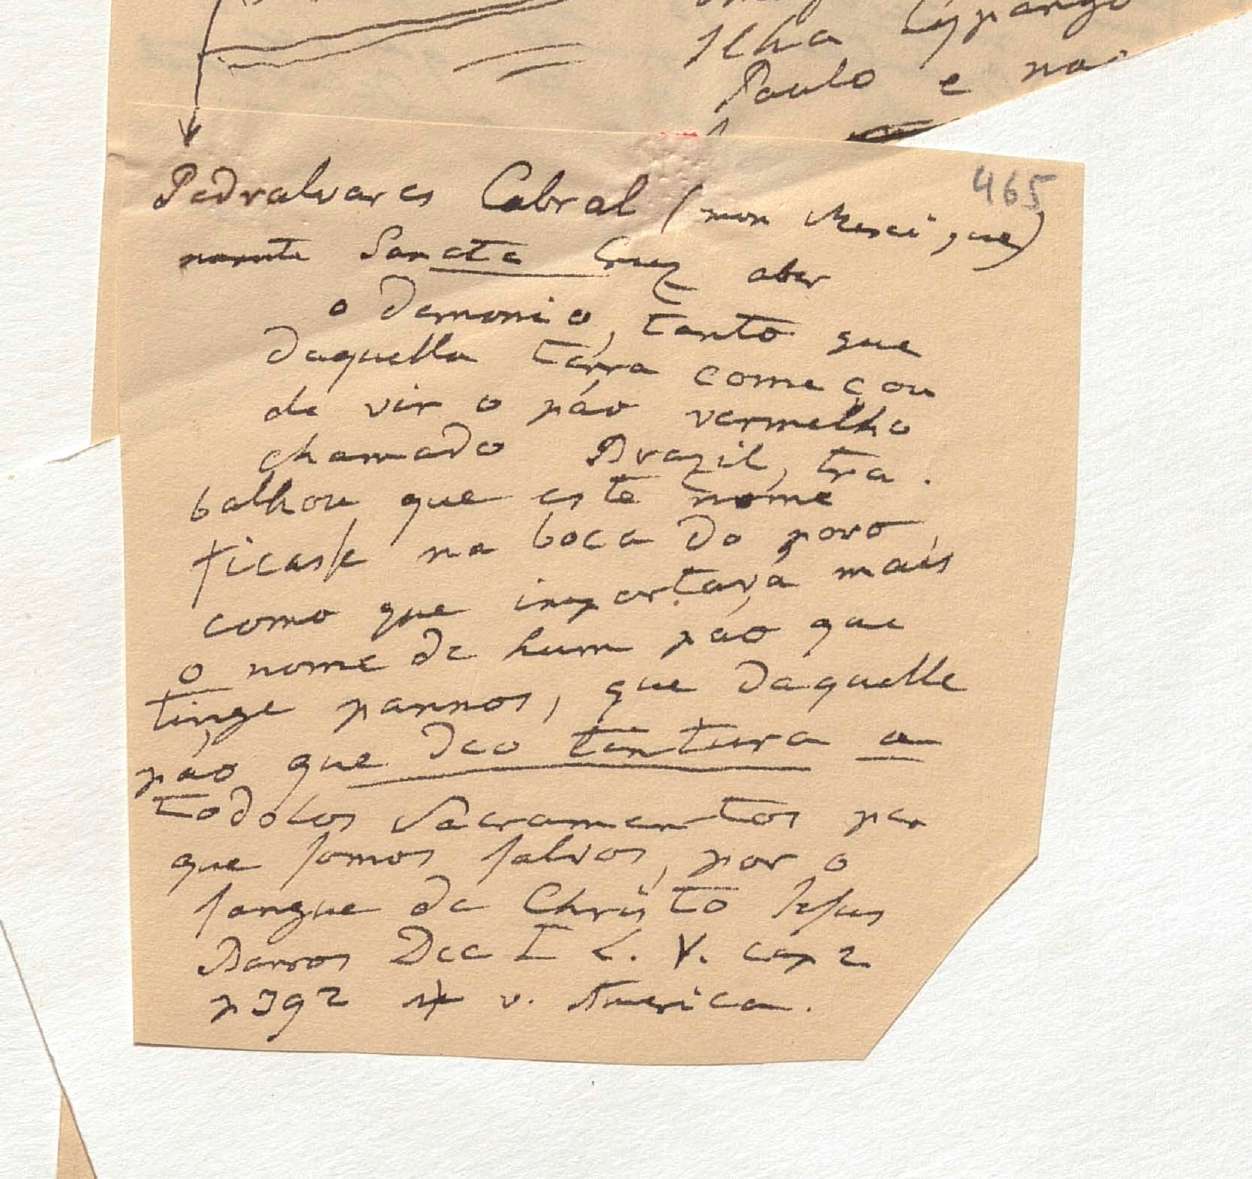 Ilha Cypango
Paulo e nas
465
Pedralvares Cabral (
nannte Sancta Cruz aber
o demonio, tanto que
daquella terra começou
de vir o páo vermelho
chamado Brazil, tra.
balhou que este nome
ficasse na boca do povo,
como que importava mais
o nome de hum pao que
tinge pannos, que daquelle
páo que deo tentura a
todolos Sacramentos per
que somos salvos, por o
sangue de Christo Jesus
Barros Dec I L. V. cap 2
p 392 v. America.